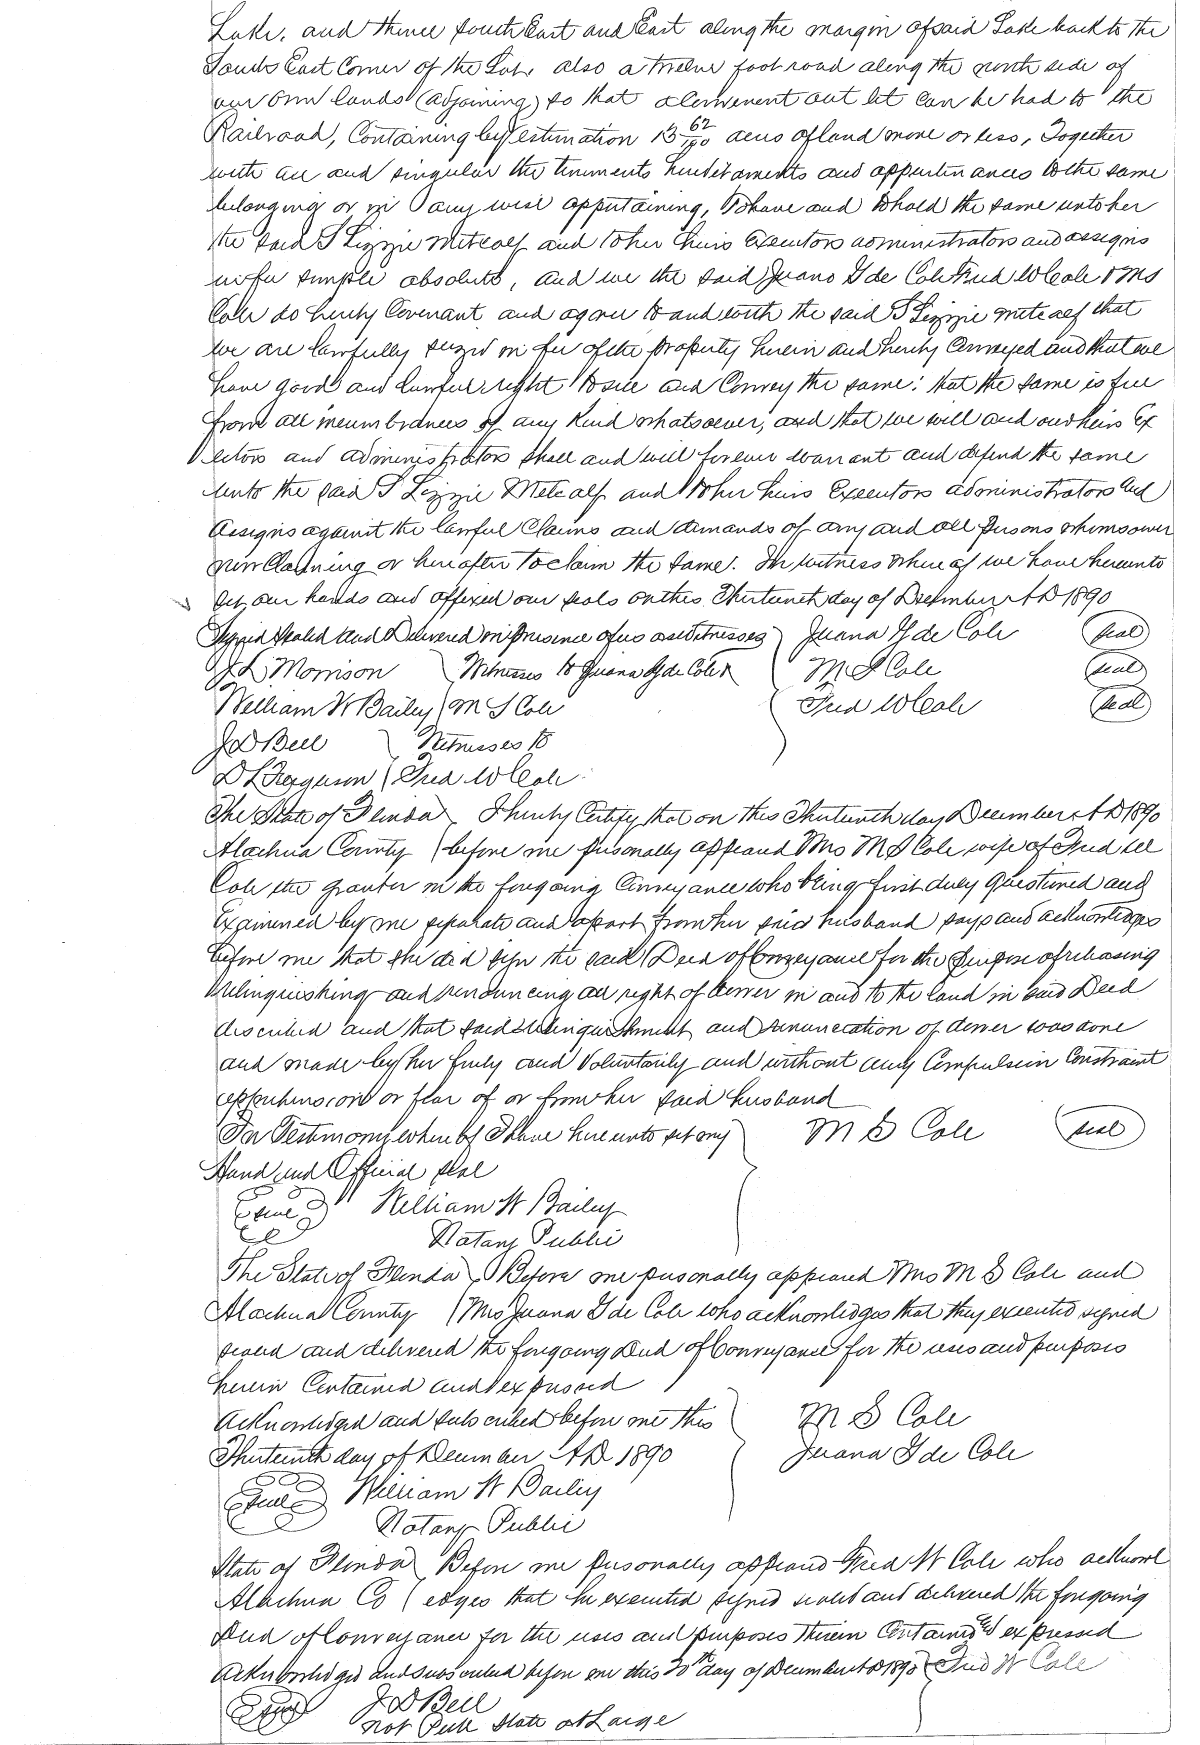 Lake. and thence South East and East along the margin of said Lake back to the
South East Corner of the Lot, also a twelve foot road along the north side of
our own lands (adjoining) so that a Convenient out let can be had to the
Railroad, Containing by estimation 13 62/100 acres of land more or less, Together
with all and singular the tenements hereditaments and appurtinances to the same
belonging or in any wise appurtaining, To have and to hold the same unto her
the said S Lizzie Metcalf and to her heirs Executors administrators and assigns
in fee simple absolute, and we the said Juana G de Cole Fred W Cole & MS
Cole do hereby Covenant and agree to and with the said S Lizzie Metcalf that
we are lawfully seized in fee of the property herein and hereby Conveyed and that we
have good and lawful right to sell and Convey the same: that the same is free
from all incumbrances of any Kind whatsoever, and that we will and our heirs Ex
ecutors and administrators shall and will forever warrant and defend the same
unto the said S Lizzie Metcalf and to her heirs Executors administrators and
Assigns against the lawful Claims and demands of any and all persons whomsoever
now Claiming or hereafter to claim the same. In witness where of we have hereunto
set our hands and affixed our seals on this Thirteenth day of December A D 1890
Signed Sealed and Delivered in presence of us as witnesses Juana G de Cole (seal)
J L Morrison Witnesses to Juana G de Cole & M S Cole (seal)
William W Bailey M S Cole Fred W Cole (seal)
J D Bell Witnesses to
D L Ferguson Fred W Cole
The State of Florida I hereby Certify that on this Thirteenth day December A D 1890
Alachua County before me personally appeared Mrs M S Cole wife of Fred W
Cole the grantor in the foregoing Conveyance who being first duly questioned and
Examined by me separate and apart from her said husband says and acknowledges
before me that she did sign the said Deed of Conveyance for the purpose of releasing
relinquishing and renouncing all right of dower in and to the land in said Deed
described and that said relinquishment and renunciation of dower was done
and made by her freely and Voluntarily and without any Compulsion Constraint
apprehension or fear of or from her said husband
In Testimony where of I have here unto set my M S Cole (seal)
Hand and Official seal
(seal) William W Bailey
Notary Public
The State of Florida Before me personally appeared Mrs M S Cole and
Alachua County Mrs Juana G de Cole who acknowledges that they executed signed
sealed and delivered the foregoing Deed of Conveyance for the uses and purposes
herein Contained and expressed
Acknowledged and subscribed before me this M S Cole
Thirteenth day of December A.D. 1890 Juana G de Cole
(seal) William W Bailey
Notary Public
State of Florida Before me personally appeared Fred W Cole who acknowl
Alachua Co edges that he executed signed sealed and delivered the foregoing
Deed of Conveyance for the uses and purposes therein Contained and expressed
Acknowledged and subscribed before me this 20th day of December A D 1890 Fred W Cole
(seal) J D Bell
Not Pub State at Large